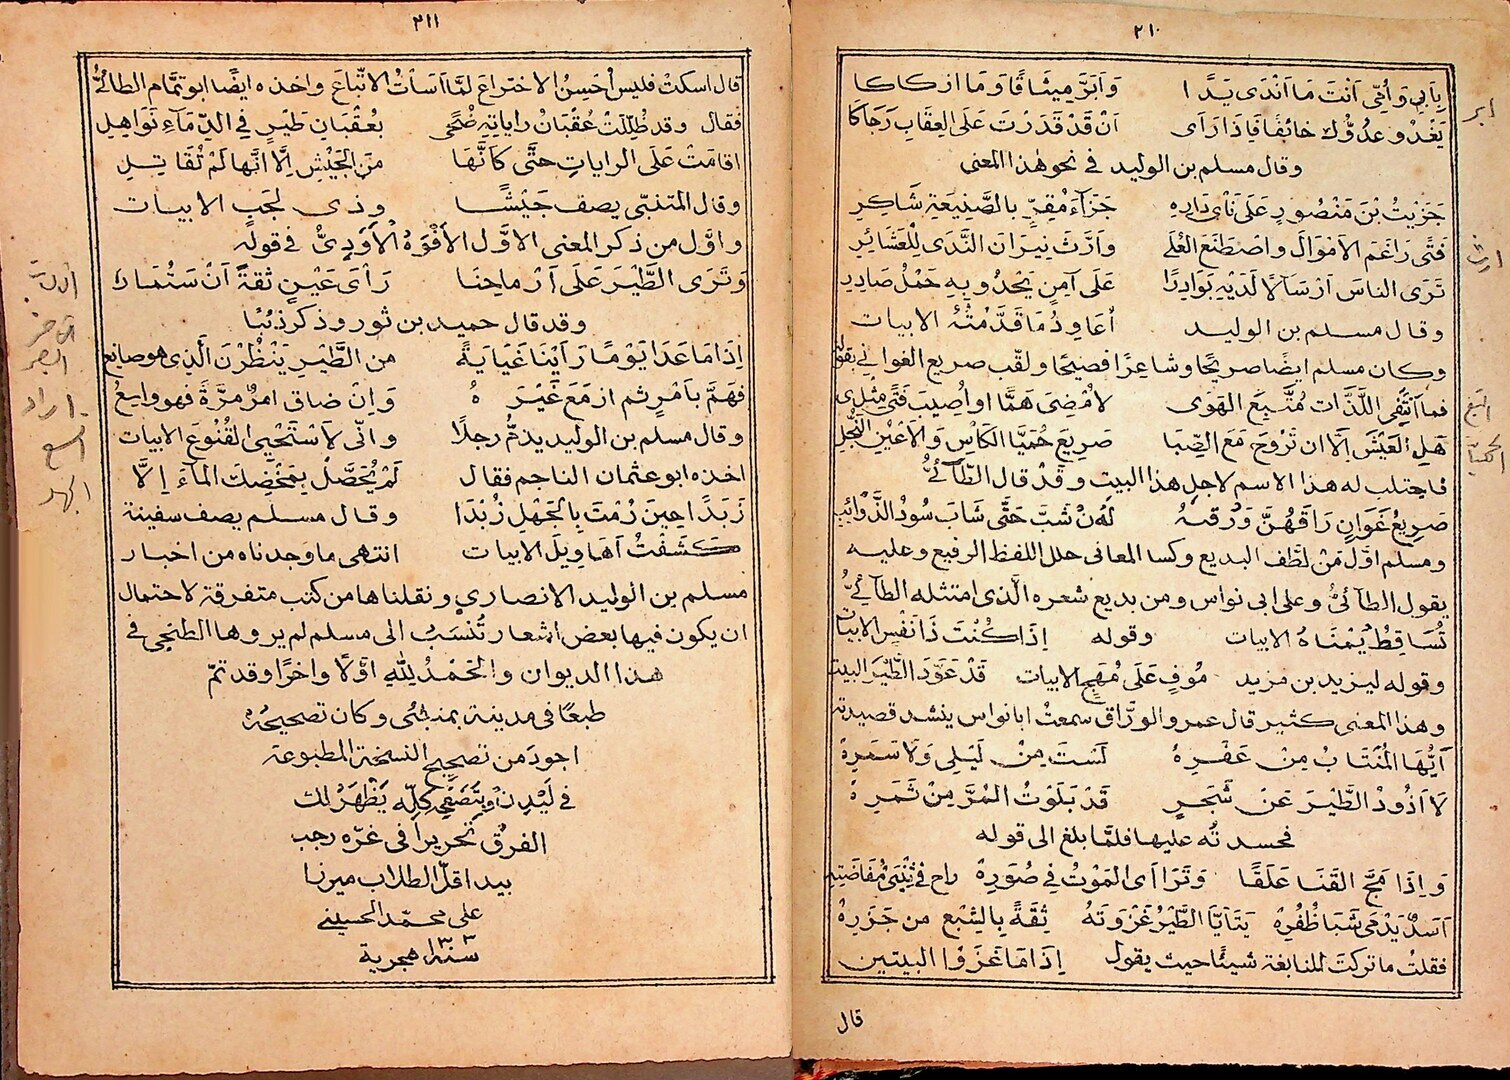 ٢١٠
بِاَبِى وَاُمِّى اَنْتَ مَا اَنْدَى يَدًا وَاَبَرَّ مِيثَاقًا وَمَا اَزْكَاكَا
يَغْدُو عَدُوُّكَ خَائِفًا فَاِذَا رَاَى اَنْ قَدْ قَدَرْتَ عَلَى العِقَابِ رَجَاكَا
وقال مسلم بن الوليد فى نحو هذا المعنى
جَزَيْتُ بْنَ مَنْصُورٍ عَلَى نَاْىِ دَارِهِ جَزَآءَ مُقِرٍّ بِالصَّنِيعَةِ شَاكِرِ
فَتًى رَاغَمَ الاَمْوَالَ وَاصْطَنَعَ العُلَى وَاَرَّثَ نِيرَانَ النَّدَى لِلْعَشَائِرِ
تَرَى الناسَ اَرْسَالًا لَدَيْهِ بَوَادِرًا عَلَى آمِنٍ يَحْدُو بِهِ حَمْلُ صَادِرِ
وقال مسلم بن الوليد اُعَاوِدُ مَا قَدَّمْتُهُ الابيات
وكان مسلم ايضا صريحًا وشاعرًا فصيحًا ولقّب صريع الغوانى بقوله
فما اَتَّقِى اللَّذَّات مُتَّبِعَ الهَوَى لِاُمْضِىَ هَمًّا او اُصِيبَ فَتًى مِثْلِى
هَلِ العَيْشُ اِلَّا ان تَرُوحَ مَعَ الصِّبَا صَرِيعَ حُمَيَّا الكَاْسِ وَالاَعْيُنِ النُّجْلِ
فاجتلب له هذا الاسم لاجل هذا البيت وقد قال الطَّآئىُّ
صَرِيعُ غَوَانٍ رَاقَهُنَّ وَرُقْنَهُ لَدُنْ شَبَّ حَتَّى شَابَ سُودُ الذَّوَائِبِ
ومسلم اوّل مَنْ لطّف البديع وكسا المعانى حلل اللفظ الرفيع وعليه
يقول الطآئىُّ وعلى ابى نواس ومن بديع شعره الَّذى امتثله الطآئىُّ
تُسَاقِطُ يُمْنَاهُ الابيات وقوله اِذَا كُنْتَ ذَا نَفْسٍ الابيات
وقوله ليزيد بن مزيد مُوفٍ عَلَى مُهَجٍ الابيات قَدْ عَوَّدَ الطَّيْرَ البيت
وهذا المعنى كثير قال عمرو الورّاق سمعتُ ابا نواس ينشد قصيدته
اَيُّهَا المُنْتَابُ مِنْ عَفُرِهْ لَسْتَ مِنْ لَيْلِى وَلَا سَمَرِهْ
لَا اَذُودُ الطَّيْرَ عَنْ شَجَرٍ قَدْ بَلَوْتُ المُرَّ مِنْ ثَمَرِهْ
فحسدتُه عليها فلمَّا بلغ الى قوله
وَاِذَا مَجَّ القَنَا عَلَقًا وَتَرَاآى المَوْتُ فِى صُوَرِهْ راح فى ثِنْيَىْ مُفَاضَتِهِ
اَسَدٌ يَدْمَى شَبَا ظُفُرِهْ يَتَاَيَّا الطَّيْرُ غَزْوَتَهُ ثِقَةً بِالشِّبْعِ من جَزَرِهْ
فقلتُ ما تركتَ للنابغة شيئًا حيث يقول اِذَا مَا غَزَوْا البيتين
قال
٢١١
قال اسكتْ فليس اُحْسِنُ الاختراعَ لمَّا اَسَأْتُ الاتّباعَ واخذه ايضًا ابو تمَّام الطائىُّ
فقال وقد ظُلِّلَتْ عُقْبَانُ راياتِهِ ضُحًى بعُقْبَانِ طَيْرٍ فى الدِّمَآءِ نَوَاهِلِ
اقامَتْ عَلَى الراياتِ حتَّى كَاَنَّهَا مِنَ الجَيْشِ اِلَّا اَنَّهَا لَمْ تُقَاتِلِ
وقال المتنبّى يصف جَيْشًا وذى لجَب الابيات
واوَّل من ذكر المعنى الاوَّل الاَفْوَهُ الاَوْدِىُّ فى قوله
وَتَرَى الطَّيْرَ عَلَى آثَارِنَا رَاْىَ عَيْنٍ ثِقَةً اَنْ سَتُمَارْ
وقد قال حميد بن ثور وذكر ذئبًا
اِذَا مَا عَدَا يَوْمًا رَاَيْنَا غَيَايَةً من الطَّيْرِ يَنْظُرْنَ الَّذِى هو صانع
فَهَمَّ بِاَمْرٍ ثم ازمَعَ غَيْرَهُ وَاِنْ ضاق امرٌ مرَّةً فهو واسِعُ
وقال مسلم بن الوليد يذمُّ رجلًا وانّى لاَسْتَحْيِى القُنُوعَ الابيات
اخذه ابو عثمان الناجم فقال لَمْ يُحَصَّلْ بِمَخْضِكَ المآءَ اِلَّا
زَبَدًا حِينَ رُمْتَ بِالجَهْلِ زُبْدَا وقال مسلم يصف سفينة
كَشَفْتُ اَهَاوِيلَ الابيات انتهى ما وجدناه من اخبار
مسلم بن الوليد الانصارى ونقلناها من كتب متفرقة لاحتمال
ان يكون فيها بعض اشعار تُنْسَبُ الى مسلم لم يروها الطبخى فى
هذا الديوان والحَمْدُ لِلّهِ اَوَّلًا وآخرًا وقد تمّ
طبعًا فى مدينة بمبئى وكان تصحيحُهُ
اجودَ من تصحيح النسخة المطبوعة
فى لَيْدِنْ وبِتَصَفُّحِ كلِّهِ يَظْهَرُ لك
الفرق تحريرا فى غرّه رجب
بيد اقلّ الطلاب ميرزا
على محمّد الحسينى
سنة ١٣٠٣ هجرية